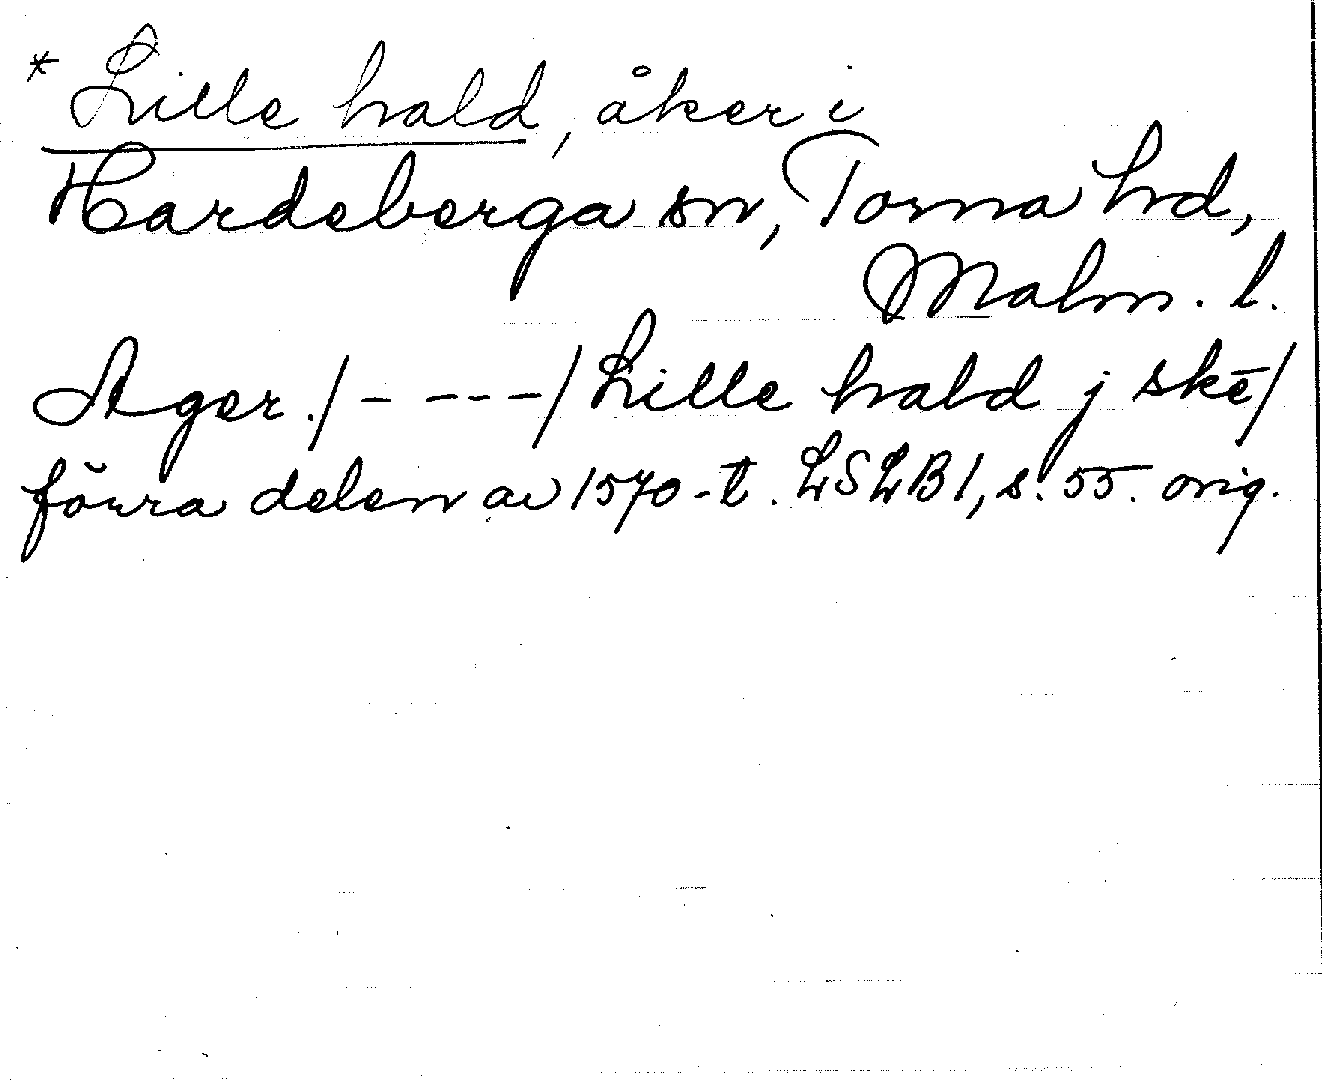 * Lille hald, åker i
Hardeberga sn, Torna hd,
Malm. l.
Ager./- ---/Lille hald j skē/
förra delen av 1570-t. LSLB 1, s. 55. orig.